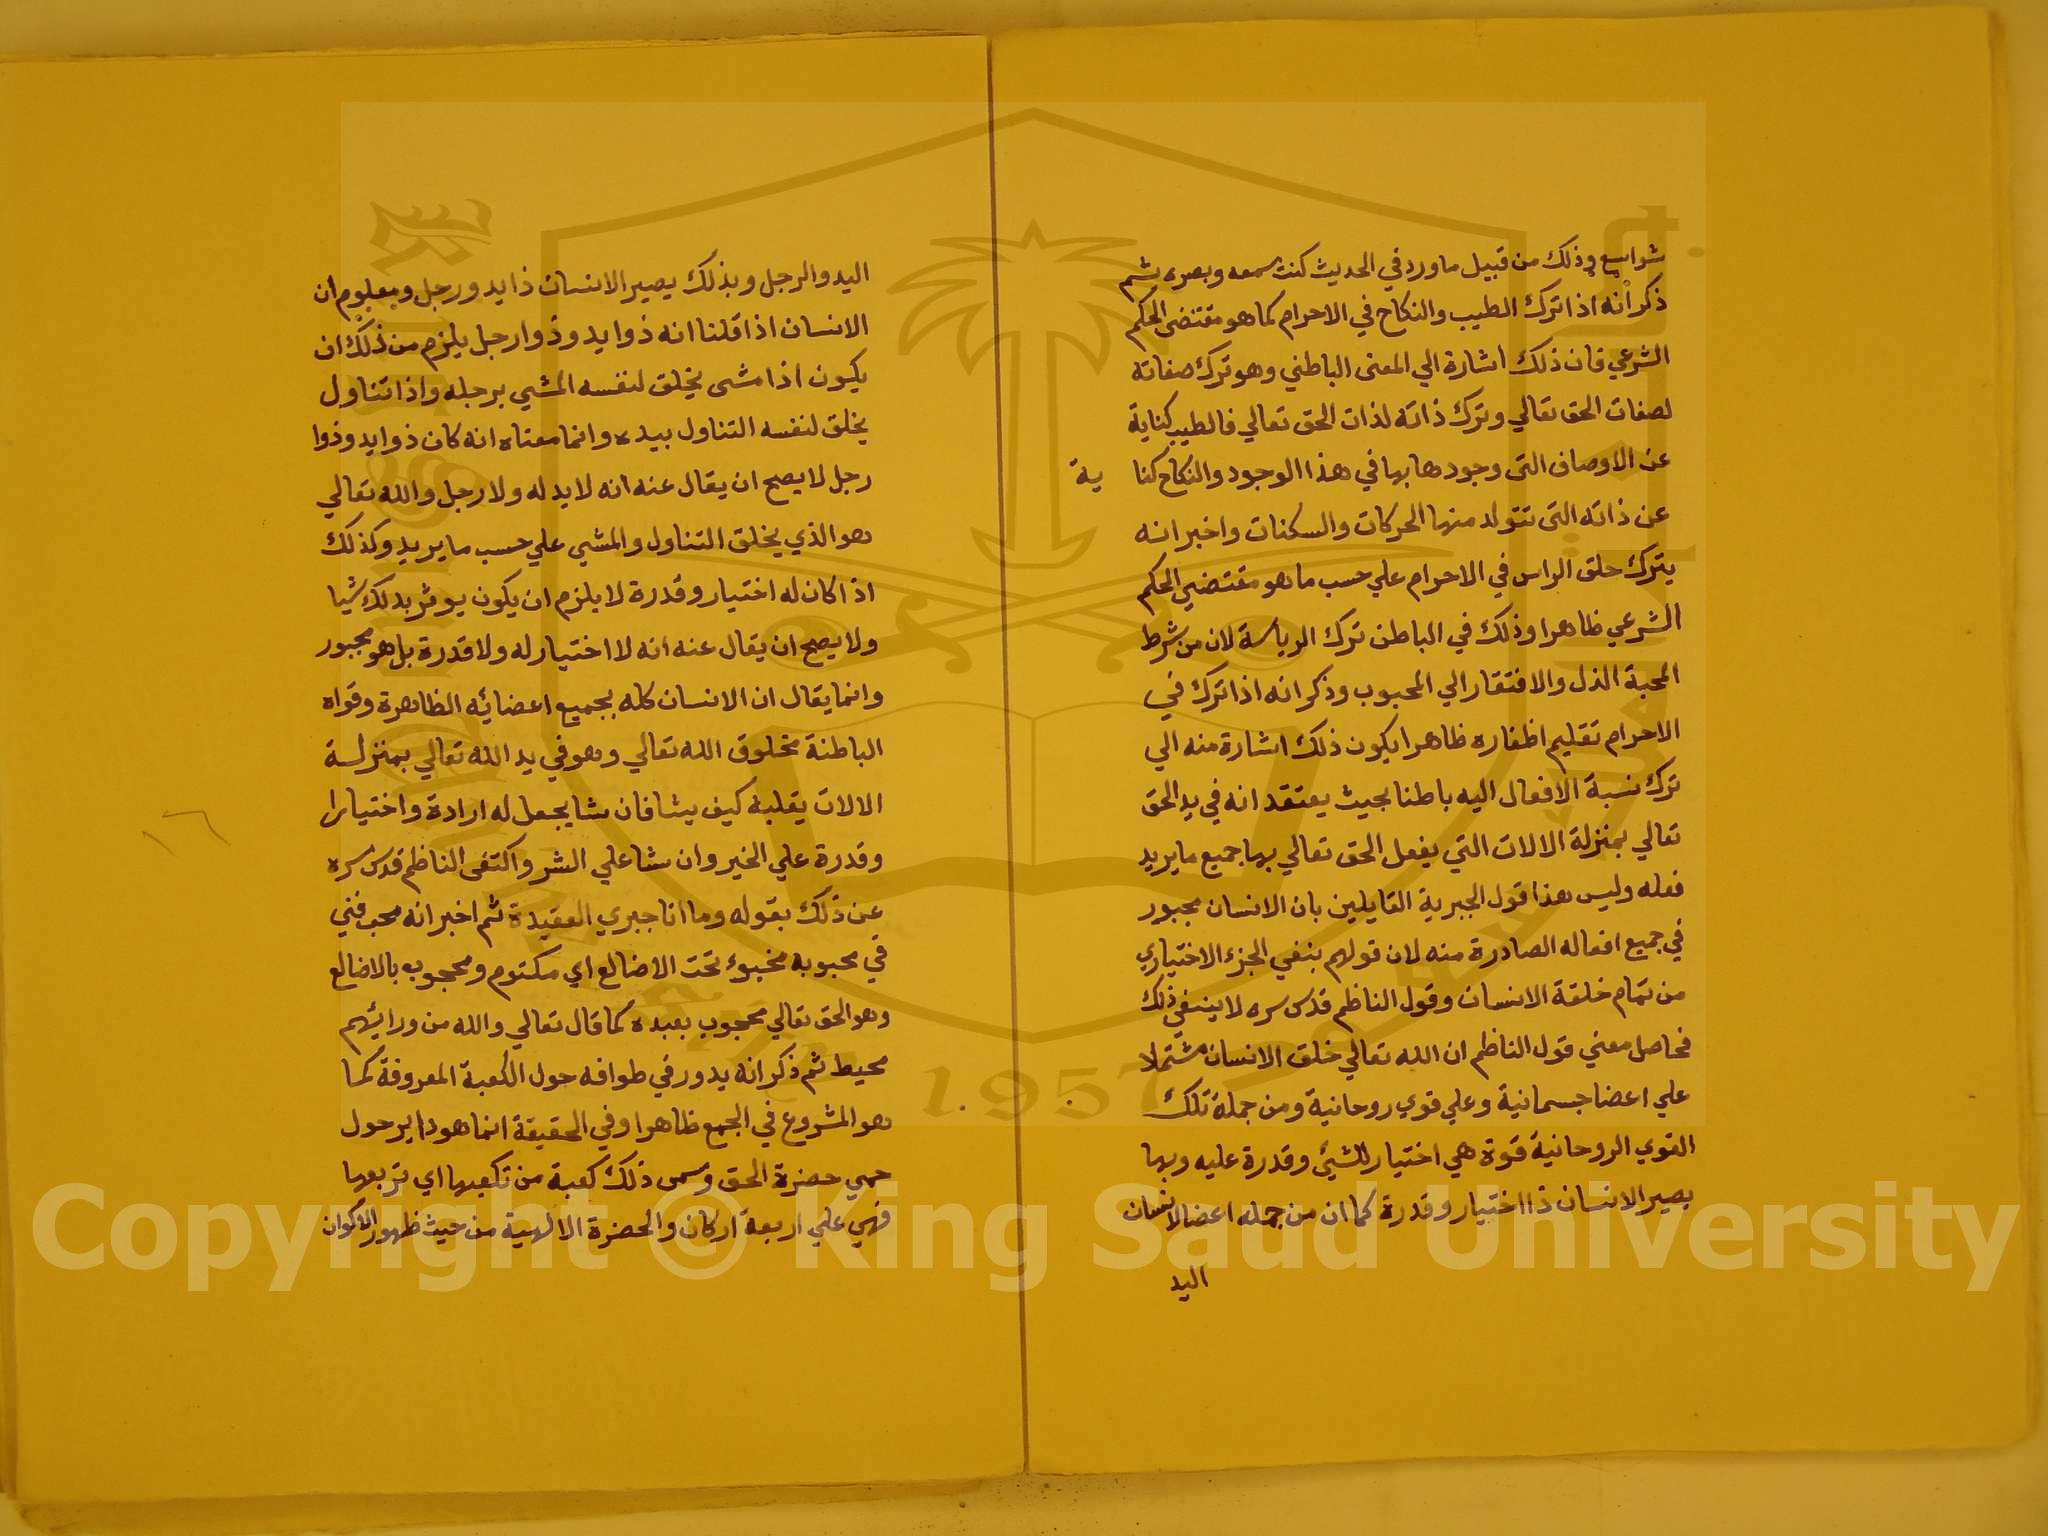 شواسع وذلك من قبيل ماورد في الحديث كنت سمعه وبصره ثم
ذكر انه اذا ترك الطيب والنكاح في الاحرام كما هو مقتضى الحكم
الشرعي فان ذلك اشارة الي المعنى الباطني وهو ترك صفاته
لصفات الحق تعالي وترك ذاته لذات الحق تعالي فالطيب كناية
عن الاوصاف التى وجودها بها في هذا الوجود والنكاح كنا ية
عن ذاته التى تتولد منها الحركات والسكنات واخبر انه
يترك حلق الراس في الاحرام علي حسب ما هو مقتضي الحكم
الشرعي ظاهرا وذلك في الباطن ترك الرياسة لان من شرط
المحبة الذل والافتقار الي المحبوب وذكر انه اذا ترك في
الاحرام تقليم اظفاره ظاهرا يكون ذلك اشارة منه الي
ترك نسبة الافعال اليه باطنا بحيث يعتقد انه في يد الحق
تعالي بمنزلة الالات التي يفعل الحق تعالي بها جميع ما يريد
فعله وليس هذا قول الجبرية القايلين بان الانسان مجبور
في جميع افعاله الصادرة منه لان قولهم بنفي الجزء الاختياري
من تمام خلقة الانسان وقول الناظم قدس سره لا ينفي ذلك
فحاصل معني قول الناظم ان الله تعالي خلق الانسان مشتملا
علي اعضا جسمانية وعلي قوي روحانية ومن جملة تلك
القوي الروحانية قوة هي اختيار للشيئ وقدرة عليه وبها
يصير الانسان ذا اختيار وقدرة كما ان من جمله اعضا الانسان
اليد
اليد والرجل وبذلك يصير الانسان ذا يد ورجل ومعلوم ان
الانسان اذا قلنا انه ذوا يد وذوا رجل يلزم من ذلك ان
يكون اذا مشى يخلق لنفسه المشي برجله واذا تناول
يخلق لنفسه التناول بيده وانما معناه انه كان ذوا يد وذوا
رجل لا يصح ان يقال عنه انه لا يد له ولا رجل والله تعالي
هو الذي يخلق التناول والمشي علي حسب ما يريد وكذلك
اذا كان له اختيار وقدرة لا يلزم ان يكون يوثر بدلك شيا
ولا يصح ان يقال عنه انه لا اختيار له ولا قدرة بل هو مجبور
وانما يقال ان الانسان كله بجميع اعضائه الظاهرة وقواه
الباطنة مخلوق الله تعالي وهو في يد الله تعالي بمنزلة
الالات يقلبه كيف يشا فان شا يجعل له ارادة واختيارا
وقدرة علي الخير وان شا علي الشر واكتفى الناظم قدس سره
عن ذلك بقوله وما انا جبري العقيدة ثم اخبر انه محب فني
في محبوبه مخبوء تحت الاضالع اي مكتوم ومحجوب بالاضالع
وهو الحق تعالي محجوب بعبده كما قال تعالي والله من ورائهم
محيط ثم ذكر انه يدور في طوافه حول الكعبة المعروفة كما
هو المشروع في الجمع ظاهرا وفي الحقيقة انما هو داير حول
حمي حضرة الحق وسمى ذلك كعبة من تكعبها اي تربعها
فهي علي اربعة اركان والحضرة الالهية من حيث ظهور الاكوان
١٦
1957
Copyright © King Saud University